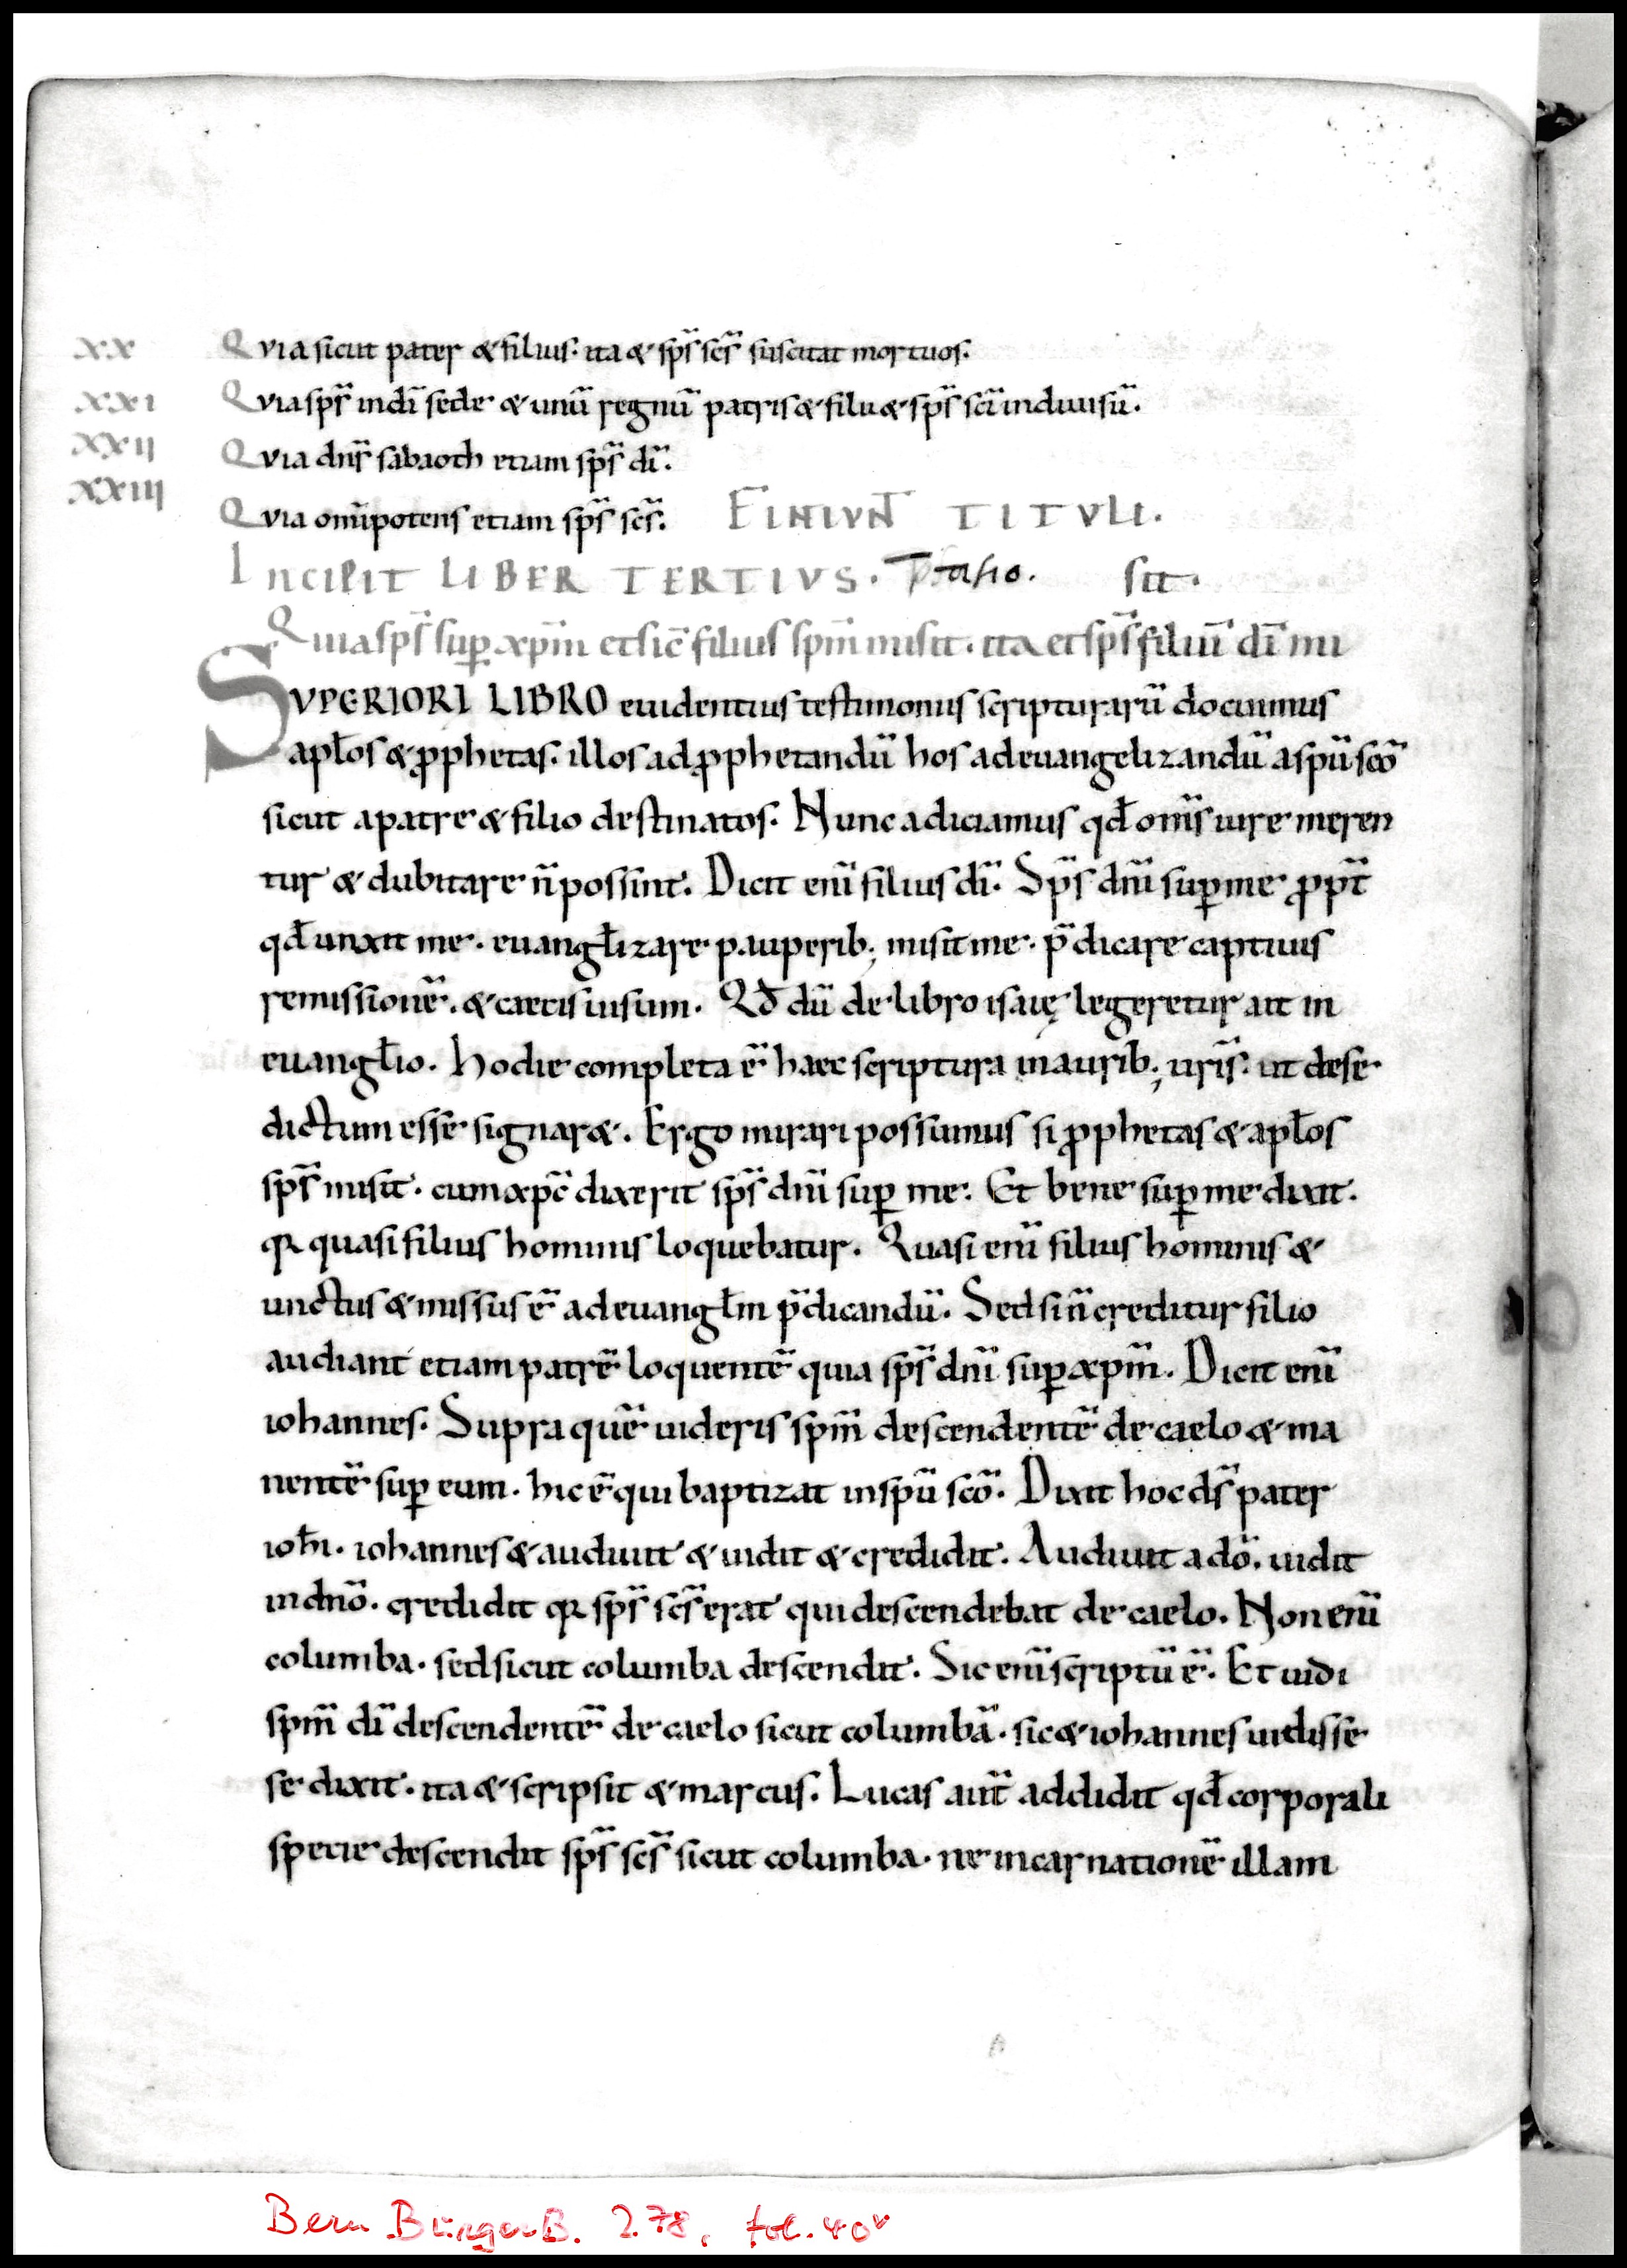 XX Quia sicut pater & filius. ita & sp̅s sc̅s suscitat mortuos.
XXI Quia sp̅s in di̅ sede & unu̅ regnu̅ patris & filii & sp̅s sc̅i indiuisu̅.
XXII Quia dn̅s sabaoth etiam sp̅s di̅.
XXIII Quia om̅ipotens etiam sp̅s sc̅s. FINIUNT TITVLI.
INCIPIT LIBER TERTIVS. sit.
Quia sp̅s sup̱ xp̅m et sic̅ filius sp̅m misit. ita et sp̅s filiu̅ di̅ mi
SVPERIORI LIBRO euidentius testimoniis scripturaru̅ docuimus
apl̅os & ꝓphetas. illos ad ꝓphetandu̅ hos ad euangelizandu̅ a sp̅u sc̅o
sicut a patre & filio destinatos. Nunc adiciamus qd̅ om̅s iure meren
tur & dubitare n̅ possint. Dicit eni̅ filius di̅. Sp̅s dn̅i sup̱ me ꝓpt̅
qd̅ unxit me. euangl̅izare pauperib; misit me. p̅dicare captiuis
remissione̅. & caecis uisum. Qd̅ du̅ de libro isaię legeretur ait in
euangl̅io. hodie completa e̅ haec scriptura in aurib; ur̅is. ut de se
dictum esse signar&. Ergo mirari possumus si ꝓphetas & apl̅os
sp̅s misit. cum xp̅c dixerit sp̅s dn̅i sup̱ me. Et bene sup̱ me dixit.
qꝛ quasi filius hominis loquebatur. Quasi eni̅ filius hominis &
unctus & missus e̅ ad euangl̅m p̅dicandu̅. Sed si n̅ creditur filio
audiant etiam patre̅ loquente̅ quia sp̅s dn̅i sup̱ xp̅m. Dicit eni̅
iohannes. Supra que̅ uideris sp̅m descendente̅ de caelo & ma
nente̅ sup̱ eum. hic e̅ qui baptizat in sp̅u sc̅o. Dixit hoc ds̅ pater
ioh̅i. iohannes & audiuit & uidit & credidit. Audiuit a do̅. uidit
in dn̅o. credidit qꝛ sp̅s sc̅s erat qui descendebat de caelo. Non eni̅
columba. sed sicut columba descendit. Sic eni̅ scriptu̅ e̅. Et uidi
sp̅m di̅ descendente̅ de caelo sicut columba̅. sic & iohannes uidisse
se dixit. ita & scripsit & marcus. Lucas aut̅ addidit qd̅ corporali
specie descendit sp̅s sc̅s sicut columba. ne incarnatione̅ illam
Bern BürgerB. 278, fol. 40v